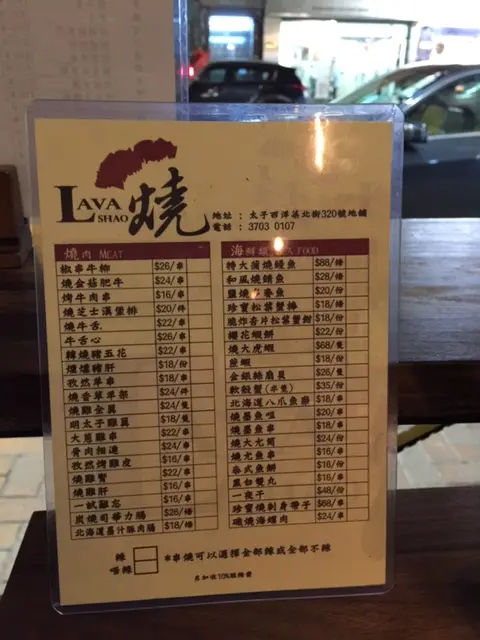 LAVA
SHAO
燒
地址 : 太子西洋菜北街320號地舖
電話 : 3703 0107
燒肉 MEAT
椒串牛柳 $26/串
燒金菇肥牛 $24/串
烤牛肉串 $16/串
燒芝士漢堡排 $20/件
燒牛舌 $22/串
牛舌心 $26/串
韓燒豬五花 $22/串
爐爐豬肝 $18/份
孜然羊串 $18/串
燒香草羊架 $24/件
燒雞全翼 $24/隻
明太子雞翼 $18/隻
大蔥雞串 $22/串
骨肉相連 $24/串
孜然烤雞皮 $16/串
燒雞腎 $22/串
燒雞肝 $16/串
一試難忘 $16/串
炭燒司華力腸 $26/條
北海道墨汁豚肉腸 $18/條
海鮮類 SEA FOOD
特大蒲燒鰻魚 $88/條
和風燒鯖魚 $28/條
鹽燒多春魚 $20/份
珍寶松葉蟹棒 $18/條
脆炸杏片松葉蟹鉗 $18/隻
櫻花蝦餅 $22/份
燒大虎蝦 $68/隻
煎蝦 $18/串
金銀絲扇貝 $26/隻
軟殼蟹(半隻) $35/份
北海道八爪魚鬚 $18/串
燒墨魚咀 $20/串
燒墨魚串 $18/串
燒大尤筒 $24/份
燒尤魚串 $16/串
泰式魚餅 $22/份
黑白雙丸 $16/串
一夜干 $48/份
珍寶燒剌身帶子 $68/串
磯燒海螺肉 $24/串
辣
唔辣
*串燒可以選擇全部辣或全部不辣
另加收10%服務費